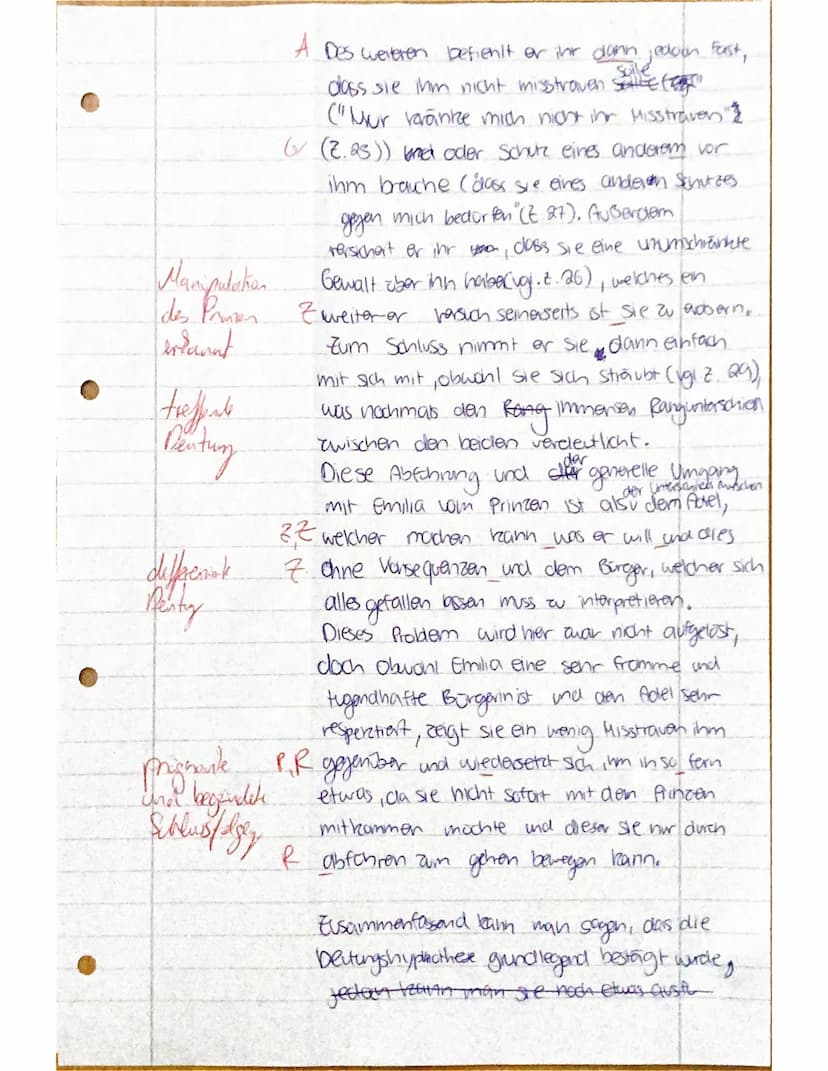 A Des weiteren befiehlt er ihr dann jedoch fast,
dass sie ihm nicht misstrauen solle
("Nur kränke mich nicht ihr Misstrauen"
G (Z.25)) oder Schutz eines anderem vor
ihm brauche ("dass sie eines anderen Schutzes
gegen mich bedürfen" (Z.27). Außerdem
versichert er ihr, dass sie eine unumschränkte
Manipulation Gewalt über ihn habe (vgl. Z. 26), welches ein
des Prinzen Z weiterer versuch seinerseits ist sie zu erobern.
erkannt Zum Schluss nimmt er sie dann einfach
mit sich mit, obwohl sie sich sträubt (vgl Z. 29),
treffende was nochmals den Rang immensen Rangunterschien
Deutung zwischen den beiden verdeutlicht.
Diese Abführung und der generelle Umgang
mit Emilia vom Prinzen ist als der unterschied zwischen dem Adel,
Z,Z welcher machen kann was er will und dies
differenzierte Z ohne Konsequenzen und dem Bürger, welcher sich
Deutung alles gefallen lassen muss zu interpretieren.
Dieses Problem wird hier zwar nicht aufgelöst,
doch obwohl Emilia eine sehr fromme und
tugendhafte Bürgerin ist und den Adel sehr
respektiert, zeigt sie ein wenig Misstrauen ihm
prägnante P,R gegenüber und wiedersetzt sich ihm in so fern
und begründete etwas, da sie nicht sofort mit dem Prinzen
Schlussfolgerung mitkommen möchte und dieser sie nur durch
R abführen zum gehen bewegen kann.
Zusammenfassend kann man sagen, das die
Deutungshypothese grundlegend bestägt wurde,
jedoch kann man sie noch etwas ausfü